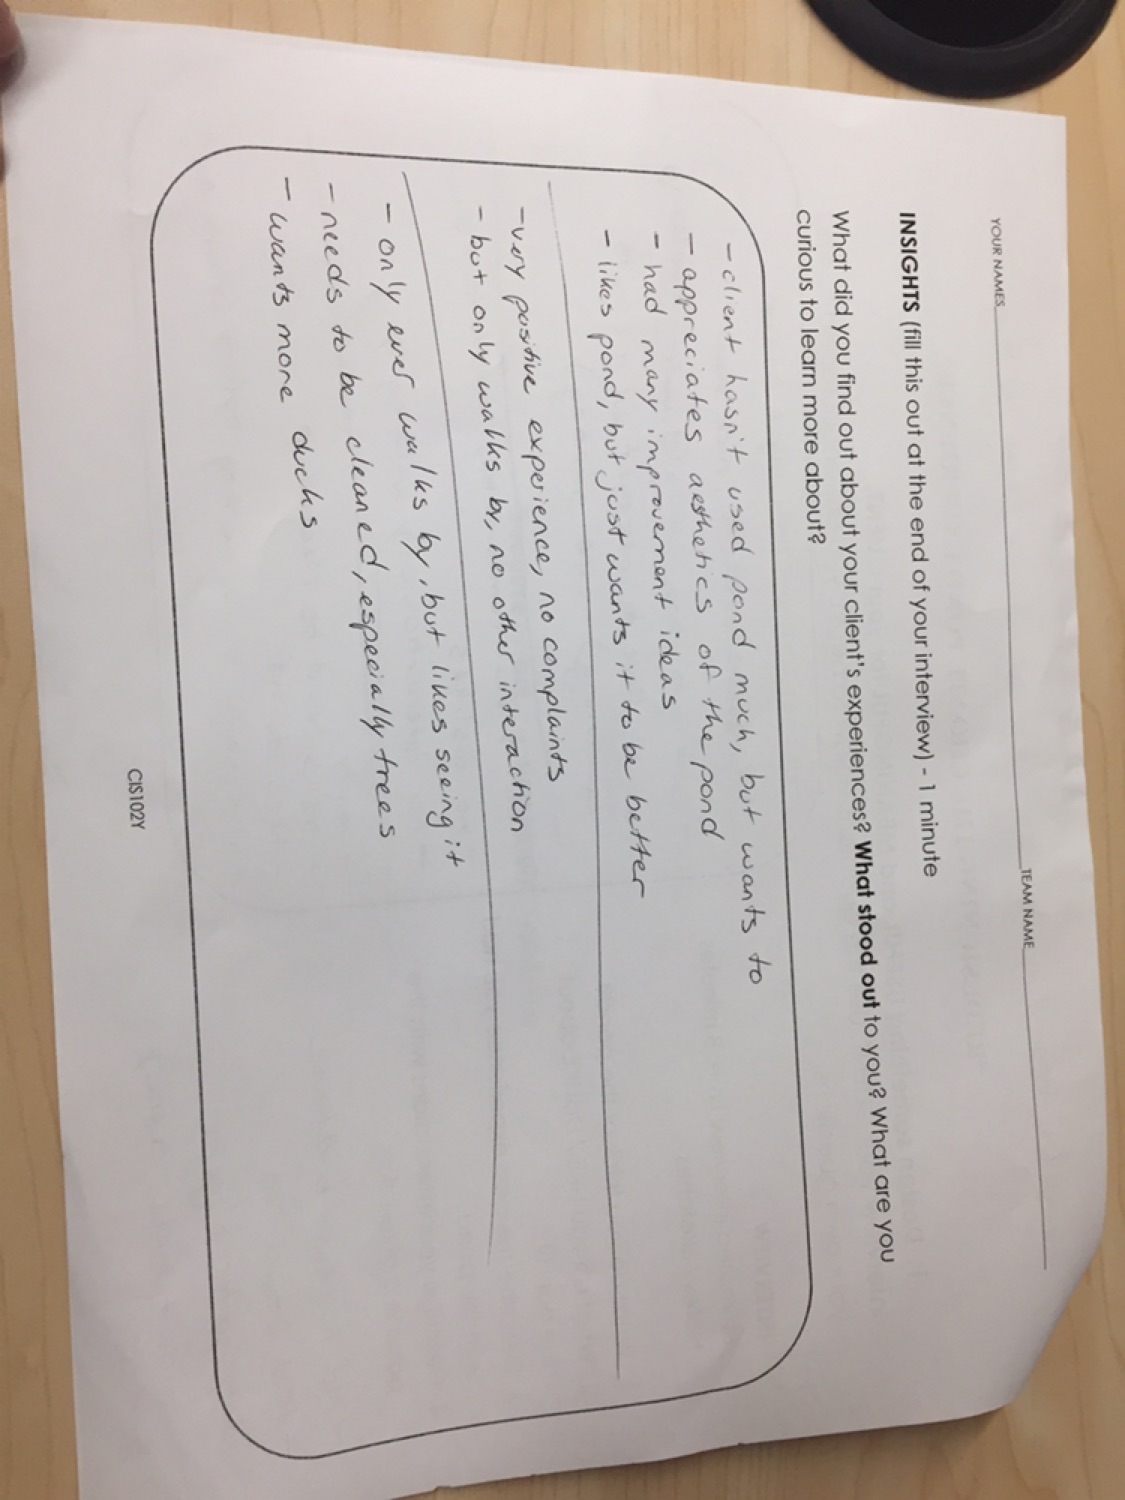 YOUR NAMES TEAM NAME
INSIGHTS (fill this out at the end of your interview) - 1 minute
What did you find out about your client's experiences? What stood out to you? What are you
curious to learn more about?
- client hasn't used pond much, but wants to
- appreciates aesthetics of the pond
- had many improvement ideas
- likes pond, but just wants it to be better
- very positive experience, no complaints
- but only walks by, no other interaction
- only ever walks by, but likes seeing it
- needs to be cleaned, especially trees
- wants more ducks
CIS102Y